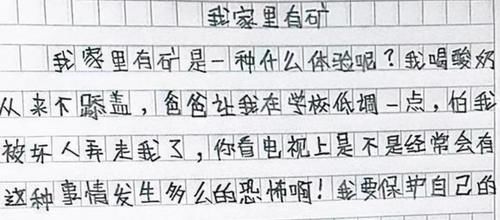 我家里有矿
我家里有矿是一种什么体验呢？我喝酸奶
从来不舔盖，爸爸让我在学校低调一点，怕我
被坏人弄走我了，你看电视上是不是经常会有
这种事情发生多么的恐怖啊！我要保护自己的